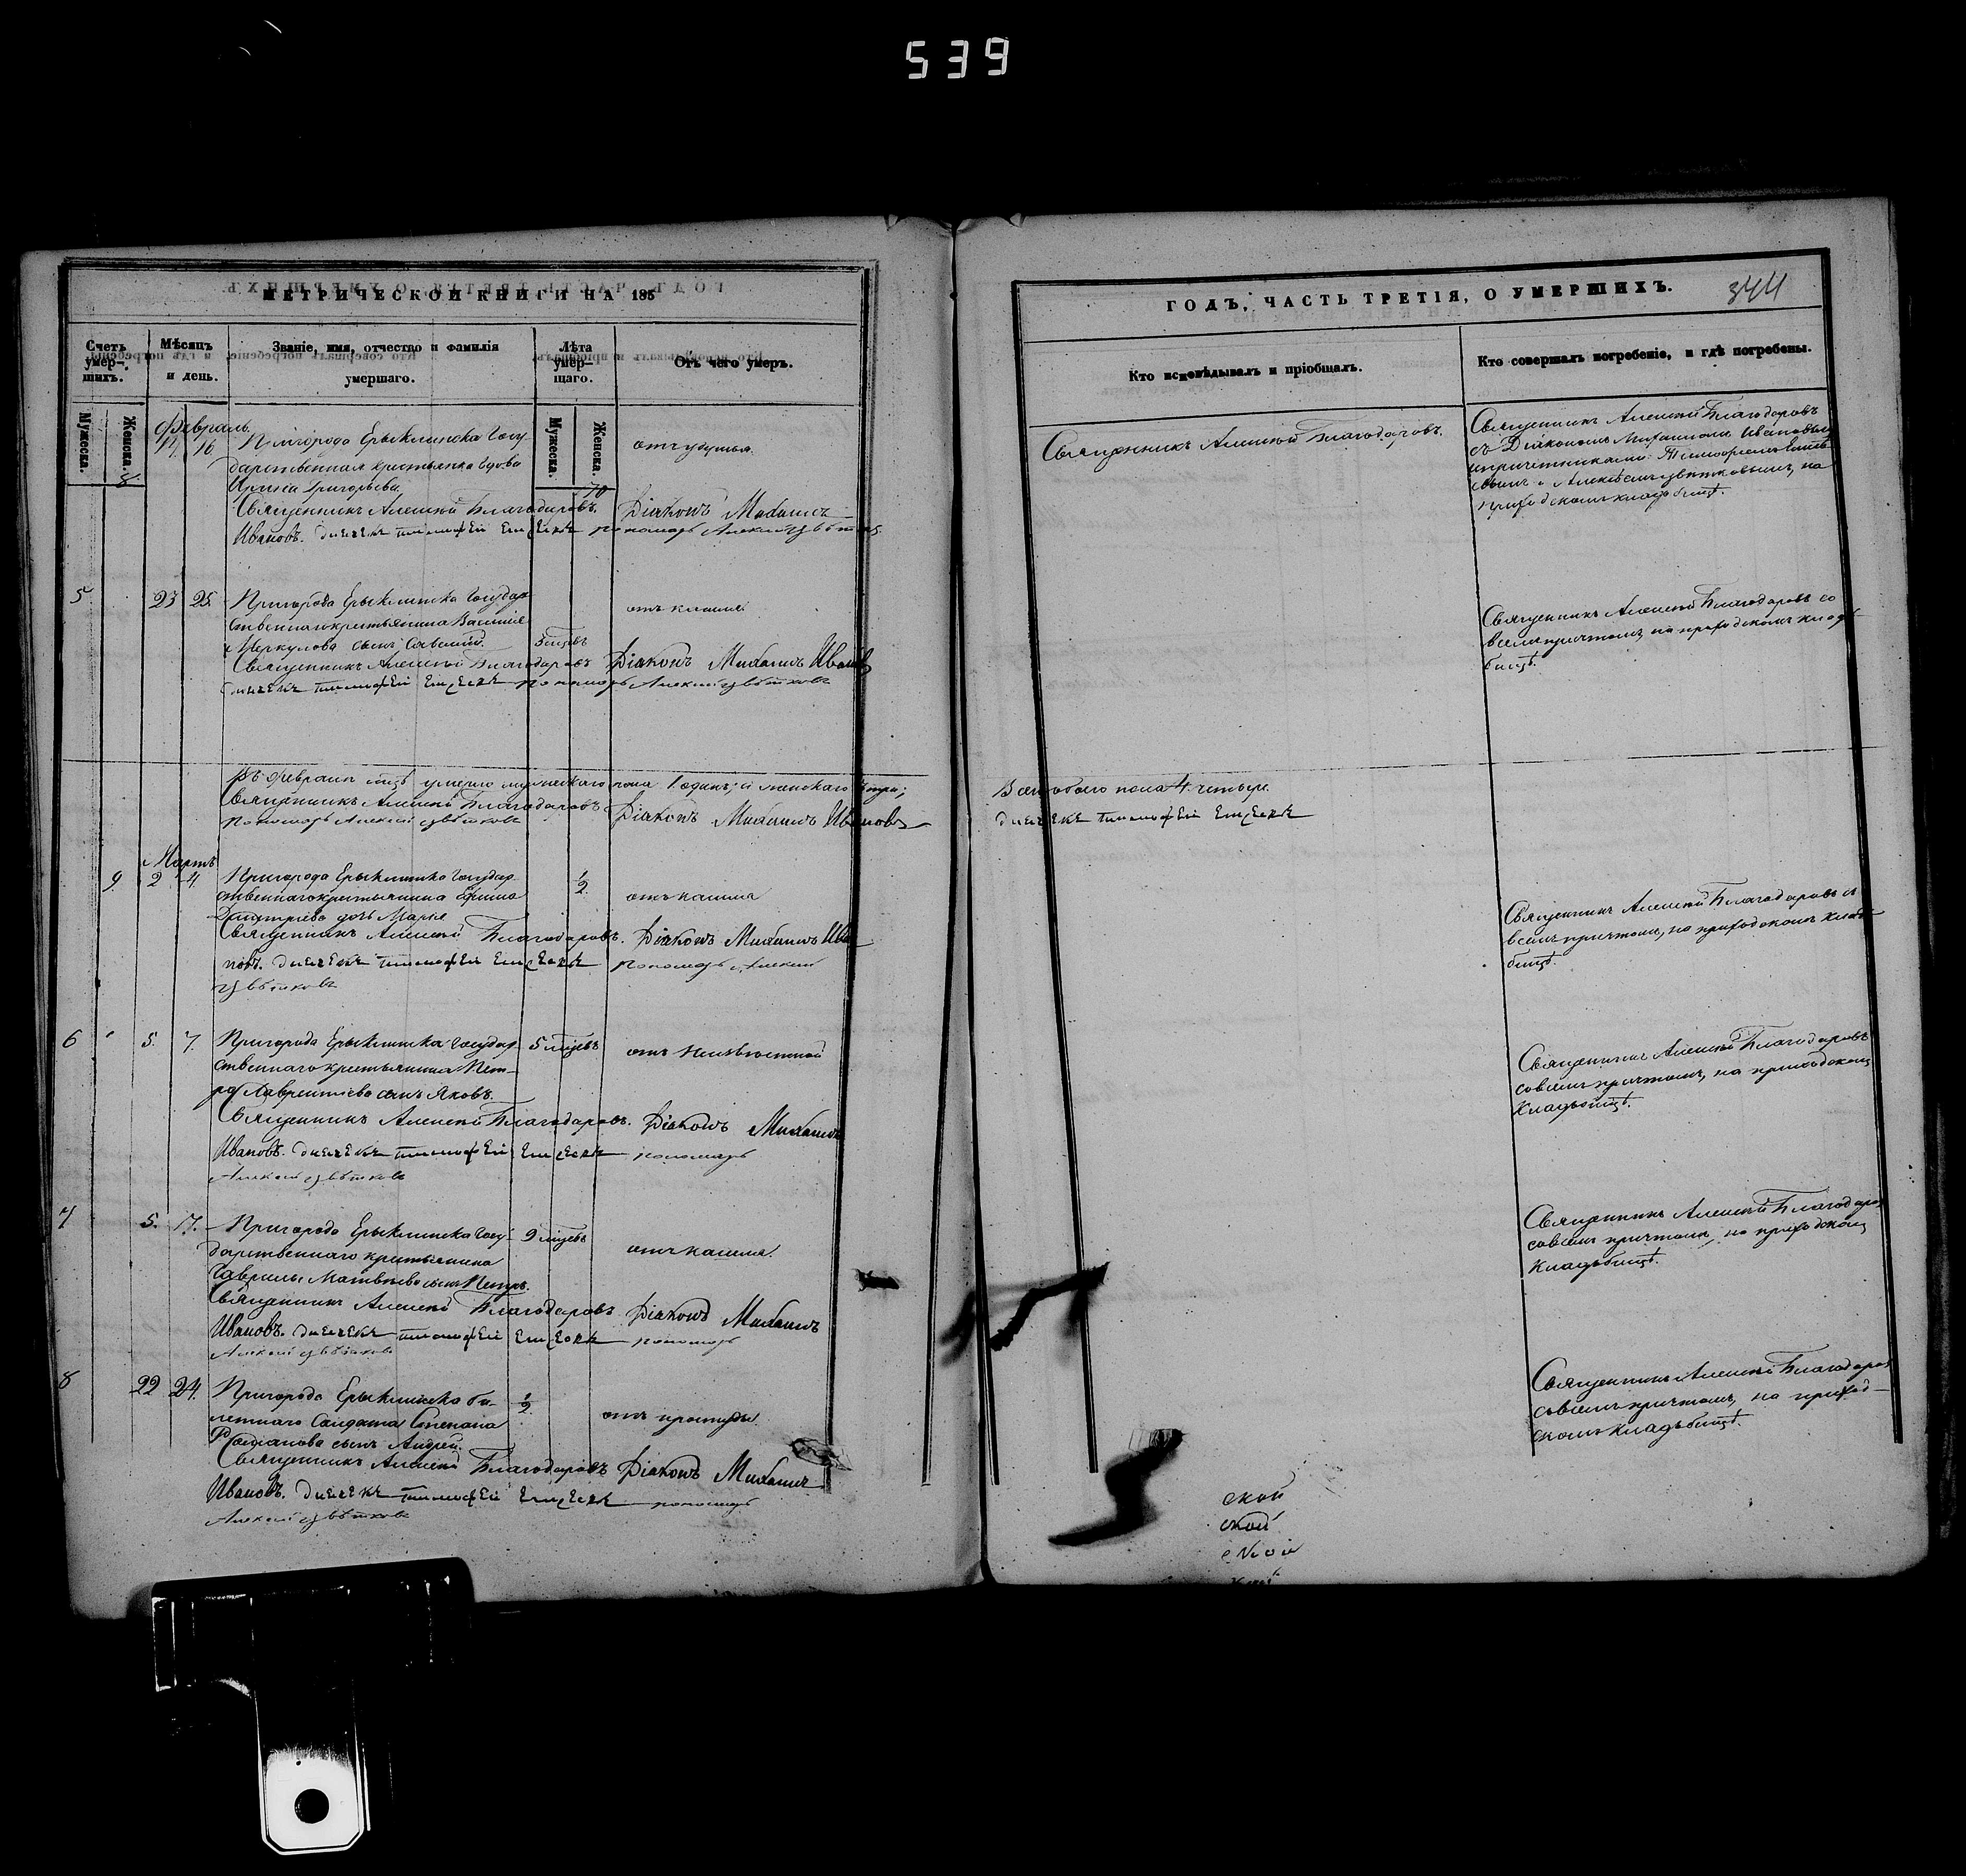 539
МЕТРИЧЕСКОЙ КНИГИ НА 185
Счетъ умер-шихъ.
Мѣсяцъ и день.
Званіе, имя, отчество и фамилія умершаго.
Лѣта умер-шаго.
Отъ чего умеръ.
Мужеска.
Женска.
Мужеска.
Женска.
Февраль.
8. 14. 16. Пригорода Ерыклинска Госу-
дарственная крестьянка вдова
Ирина Григорьева 70 отъ удушья.
Священникъ Алексѣй Благодаровъ. Діаконъ Михаилъ
Ивановъ. дьячекъ тимофей пономарь Алексѣй Цвѣтковъ
5 23 25. Пригорода Ерыклинска Государ-
ственнаго крестьянина Василія
Меркулова сынъ Савелій. 3 мцовъ отъ кашля
Священникъ Алексѣй Благодаровъ Діаконъ Михаилъ Ивановъ
дьячекъ тимофей пономарь Алексѣй Цвѣтковъ
Въ Февралѣ мцѣ умерло мужескаго пола 1 одинъ; и женскаго 3 три;
Священникъ Алексѣй Благодаровъ Діаконъ Михаилъ Ивановъ
пономарь Алексѣй Цвѣтковъ
Мартъ
9. 2 4. Пригорода Ерыклинска Государ-
ственнаго крестьянина Ефима
Дмитриева дочь Марія 1/2 отъ кашля
Священникъ Алексѣй Благодаровъ. Діаконъ Михаилъ Ива-
новъ. дьячекъ тимофей пономарь Алексѣй
Цвѣтковъ
6 5. 7. Пригорода Ерыклинска Государ-
ственнаго крестьянина Пет-
ра Лаврентіева сынъ Яковъ. 5 мцевъ отъ неизвѣстной
Священникъ Алексѣй Благодаровъ. Діаконъ Михаилъ
Ивановъ. дьячекъ тимофей пономарь
Алексѣй Цвѣтковъ
7 5. 17. Пригорода Ерыклинска Госу-
дарственнаго крестьянина
Гаврилы Матвѣева сынъ Петръ. 9 мцевъ отъ кашля.
Священникъ Алексѣй Благодаровъ Діаконъ Михаилъ
Ивановъ. дьячекъ тимофей пономарь
Алексѣй Цвѣтковъ
8 22 24. Пригорода Ерыклинска би-
летнаго солдата Степана
Романова сынъ Андрей. 1/2 отъ простуды.
Священникъ Алексѣй Благодаровъ Діаконъ Михаилъ
Ивановъ. дьячекъ тимофей пономарь
Алексѣй Цвѣтковъ
ГОДЪ, ЧАСТЬ ТРЕТІЯ, О УМЕРШИХЪ.
344
Кто исповѣдывалъ и пріобщалъ.
Кто совершалъ погребеніе, и гдѣ погребены.
Священникъ Алексѣй Благодаровъ.
Священникъ Алексѣй Благодаровъ
съ Діакономъ Михаиломъ Ивановымъ
и причетниками Тимофеемъ
и Алексѣемъ Цвѣтковымъ, на
приходскомъ кладбищѣ.
Священникъ Алексѣй Благодаровъ со
всемъ причтомъ, на приходскомъ клад-
бищѣ.
Всего обоего пола 4 четыре.
дьячекъ тимофей
Священникъ Алексѣй Благодаровъ съ
всемъ причтомъ, на приходскомъ клад-
бищѣ.
Священникъ Алексѣй Благодаровъ
со всемъ причтомъ, на приходскомъ
кладбищѣ.
Священникъ Алексѣй Благодаров
со всемъ причтомъ, на приходскомъ
кладбищѣ.
Священникъ Алексѣй Благодаров
со всемъ причтомъ, на приход-
скомъ кладбищѣ.
ской
ской